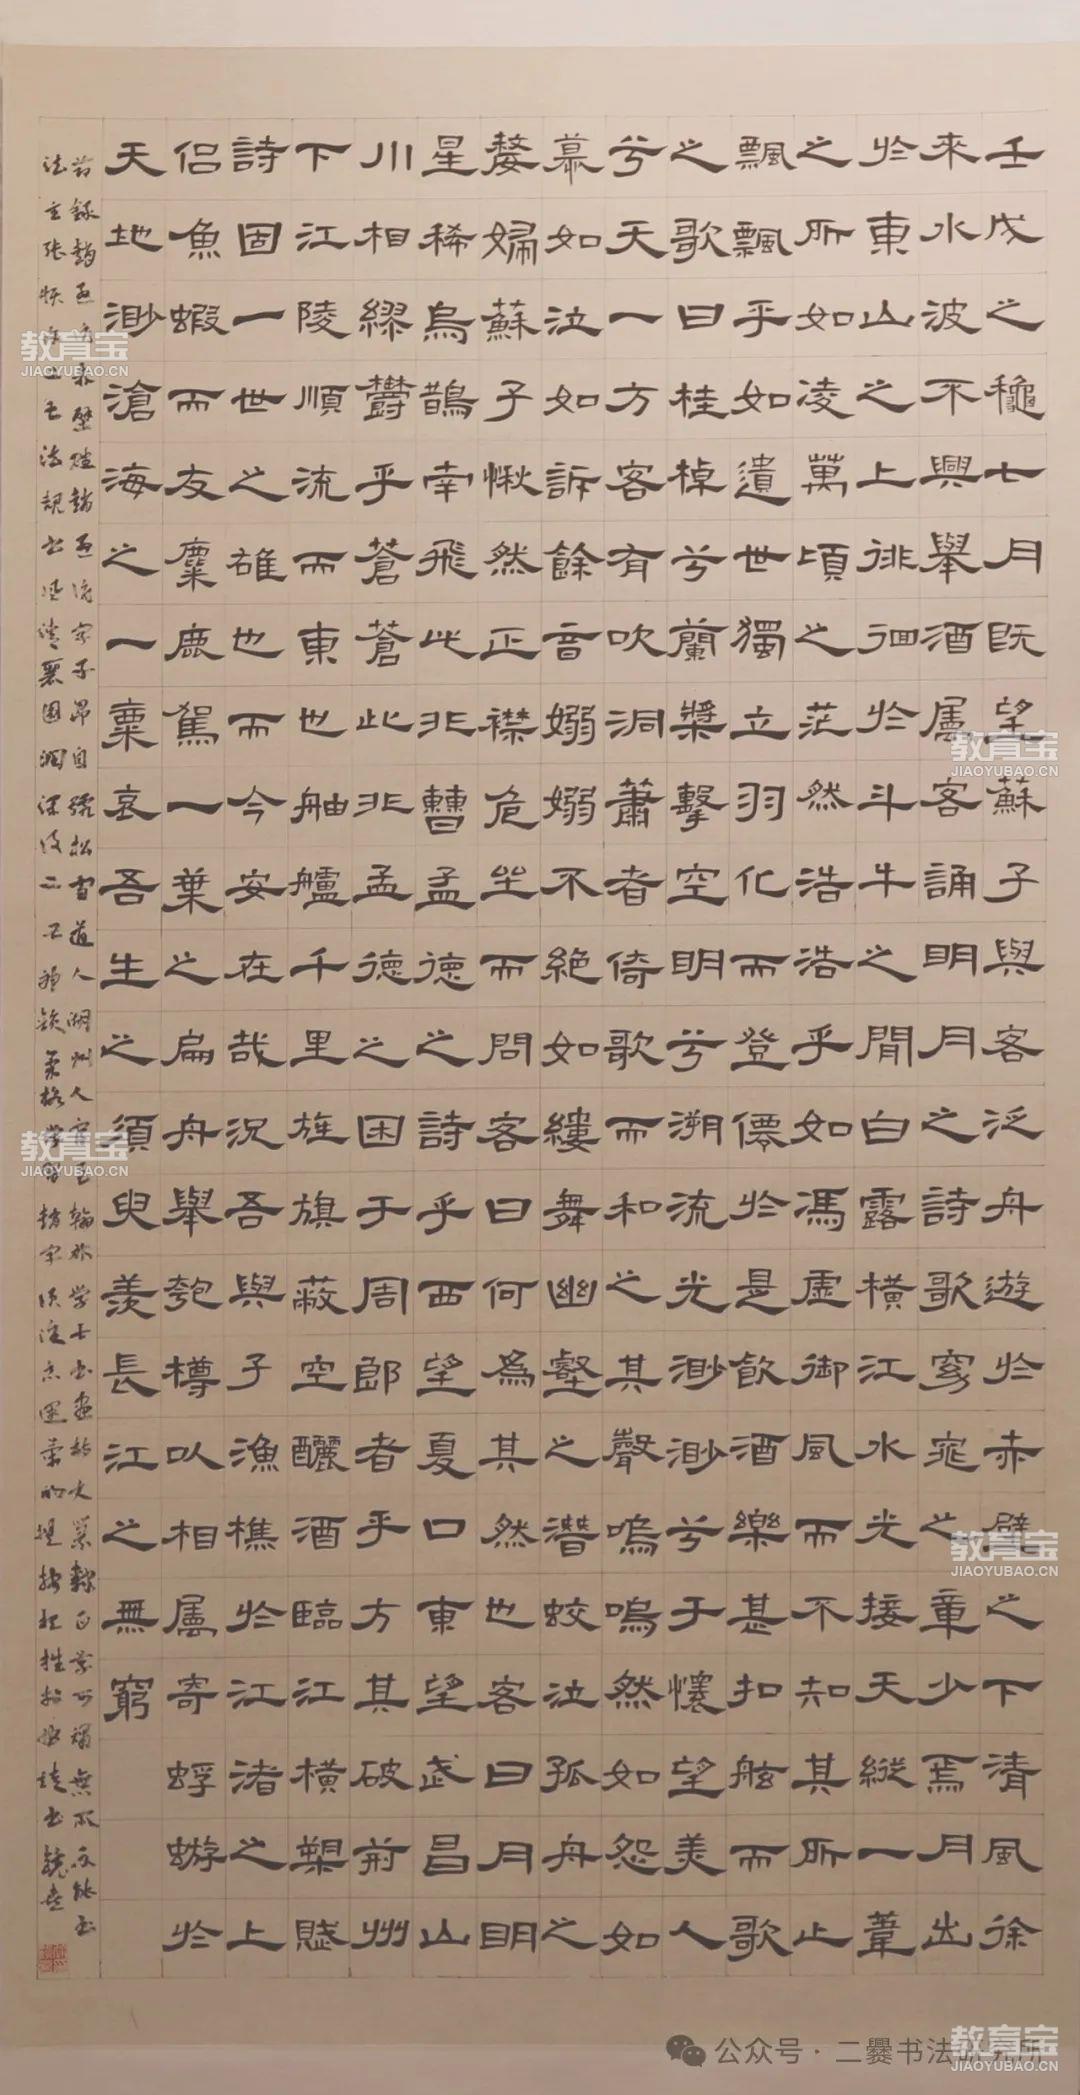 壬戌之穐七月既望蘇子與客泛舟遊於赤壁之下清風徐
來水波不興舉酒屬客誦明月之詩歌窈窕之章少焉月出
於東山之上徘徊於斗牛之間白露橫江水光接天縱一葦
之所如凌萬頃之茫然浩浩乎如馮虛御風而不知其所止
飄飄乎如遺世獨立羽化而登僊於是飲酒樂甚扣舷而歌
之歌曰桂棹兮蘭槳擊空明兮溯流光渺渺兮于懷望美人
兮天一方客有吹洞蕭者倚歌而和之其聲嗚嗚然如怨如
慕如泣如訴餘音嫋嫋不絕如縷舞幽壑之潛蛟泣孤舟之
嫠婦蘇子愀然正襟危坐而問客曰何為其然也客曰月明
星稀烏鵲南飛此非曹孟德之詩乎西望夏口東望武昌山
川相繆鬱乎蒼蒼此非孟德之困于周郎者乎方其破荊州
下江陵順流而東也舳艫千里旌旗蔽空釃酒臨江橫槊賦
詩固一世之雄也而今安在哉況吾與子漁樵於江渚之上
侶魚蝦而友麋鹿駕一葉之扁舟舉匏樽以相屬寄蜉蝣於
天地渺滄海之一粟哀吾生之須臾羨長江之無窮
趙孟頫字子昂自號松雪道人湖州人官至翰林学士
教育宝
JIAOYUBAO.CN
教育宝
JIAOYUBAO.CN
教育宝
JIAOYUBAO.CN
教育宝
JIAOYUBAO.CN
公众号·二爨书法研究所
教育宝
JIAOYUBAO.CN